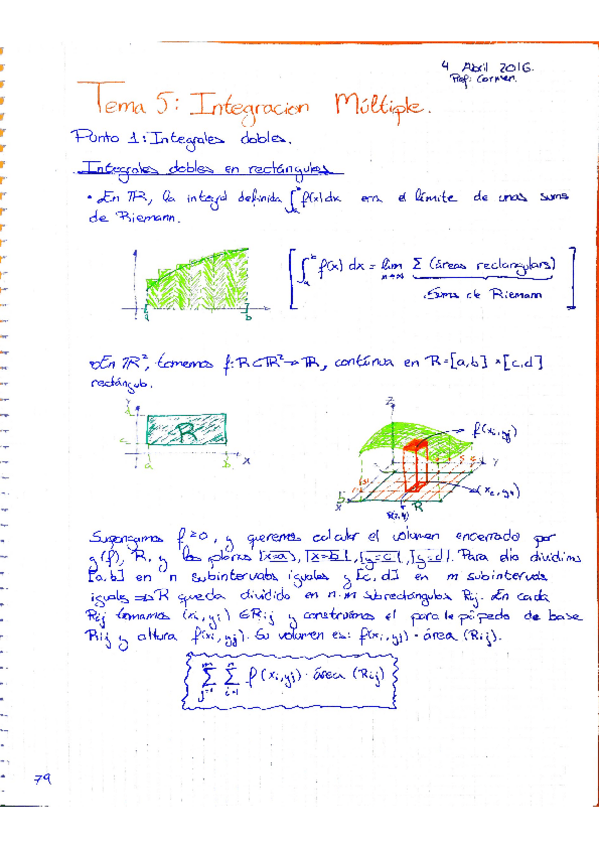 4 Abril 2016.
Prof: Carmen.
Tema 5: Integracion Múltiple.
Punto 1: Integrales dobles.
Integrales dobles en rectángulos
• En ℝ, la integral definida ∫_a^b f(x)dx era el límite de unas sumas
de Riemann.
[ ∫_a^b f(x) dx = lim_{n→∞} Σ (áreas rectangulars) ]
Sumas de Riemann
a b
• En ℝ², tomemos f: R⊂ℝ² → ℝ, continua en R=[a,b] × [c,d]
rectángulo.
Y
d
c
R
a b X
Z
f(xi,yj)
Y
(xi,yj)
X
R
Supongamos f≥0, y queremos calcular el volumen encerrado por
g(f), R, y los planos |x=a|, |x=b|, |y=c|, |y=d|. Para ello dividimos
[a,b] en n subintervalos iguales y [c,d] en m subintervalos
iguales ⇒ R queda dividido en n·m subrectángulos Rij. En cada
Rij tomamos (xi,yj) ∈ Rij y construimos el paralepípedo de base
Rij y altura f(xi,yj). Su volumen es: f(xi,yj) · área (Rij).
Σ_{j=1}^m Σ_{i=1}^n f(xi,yj) · área (Rij)
79